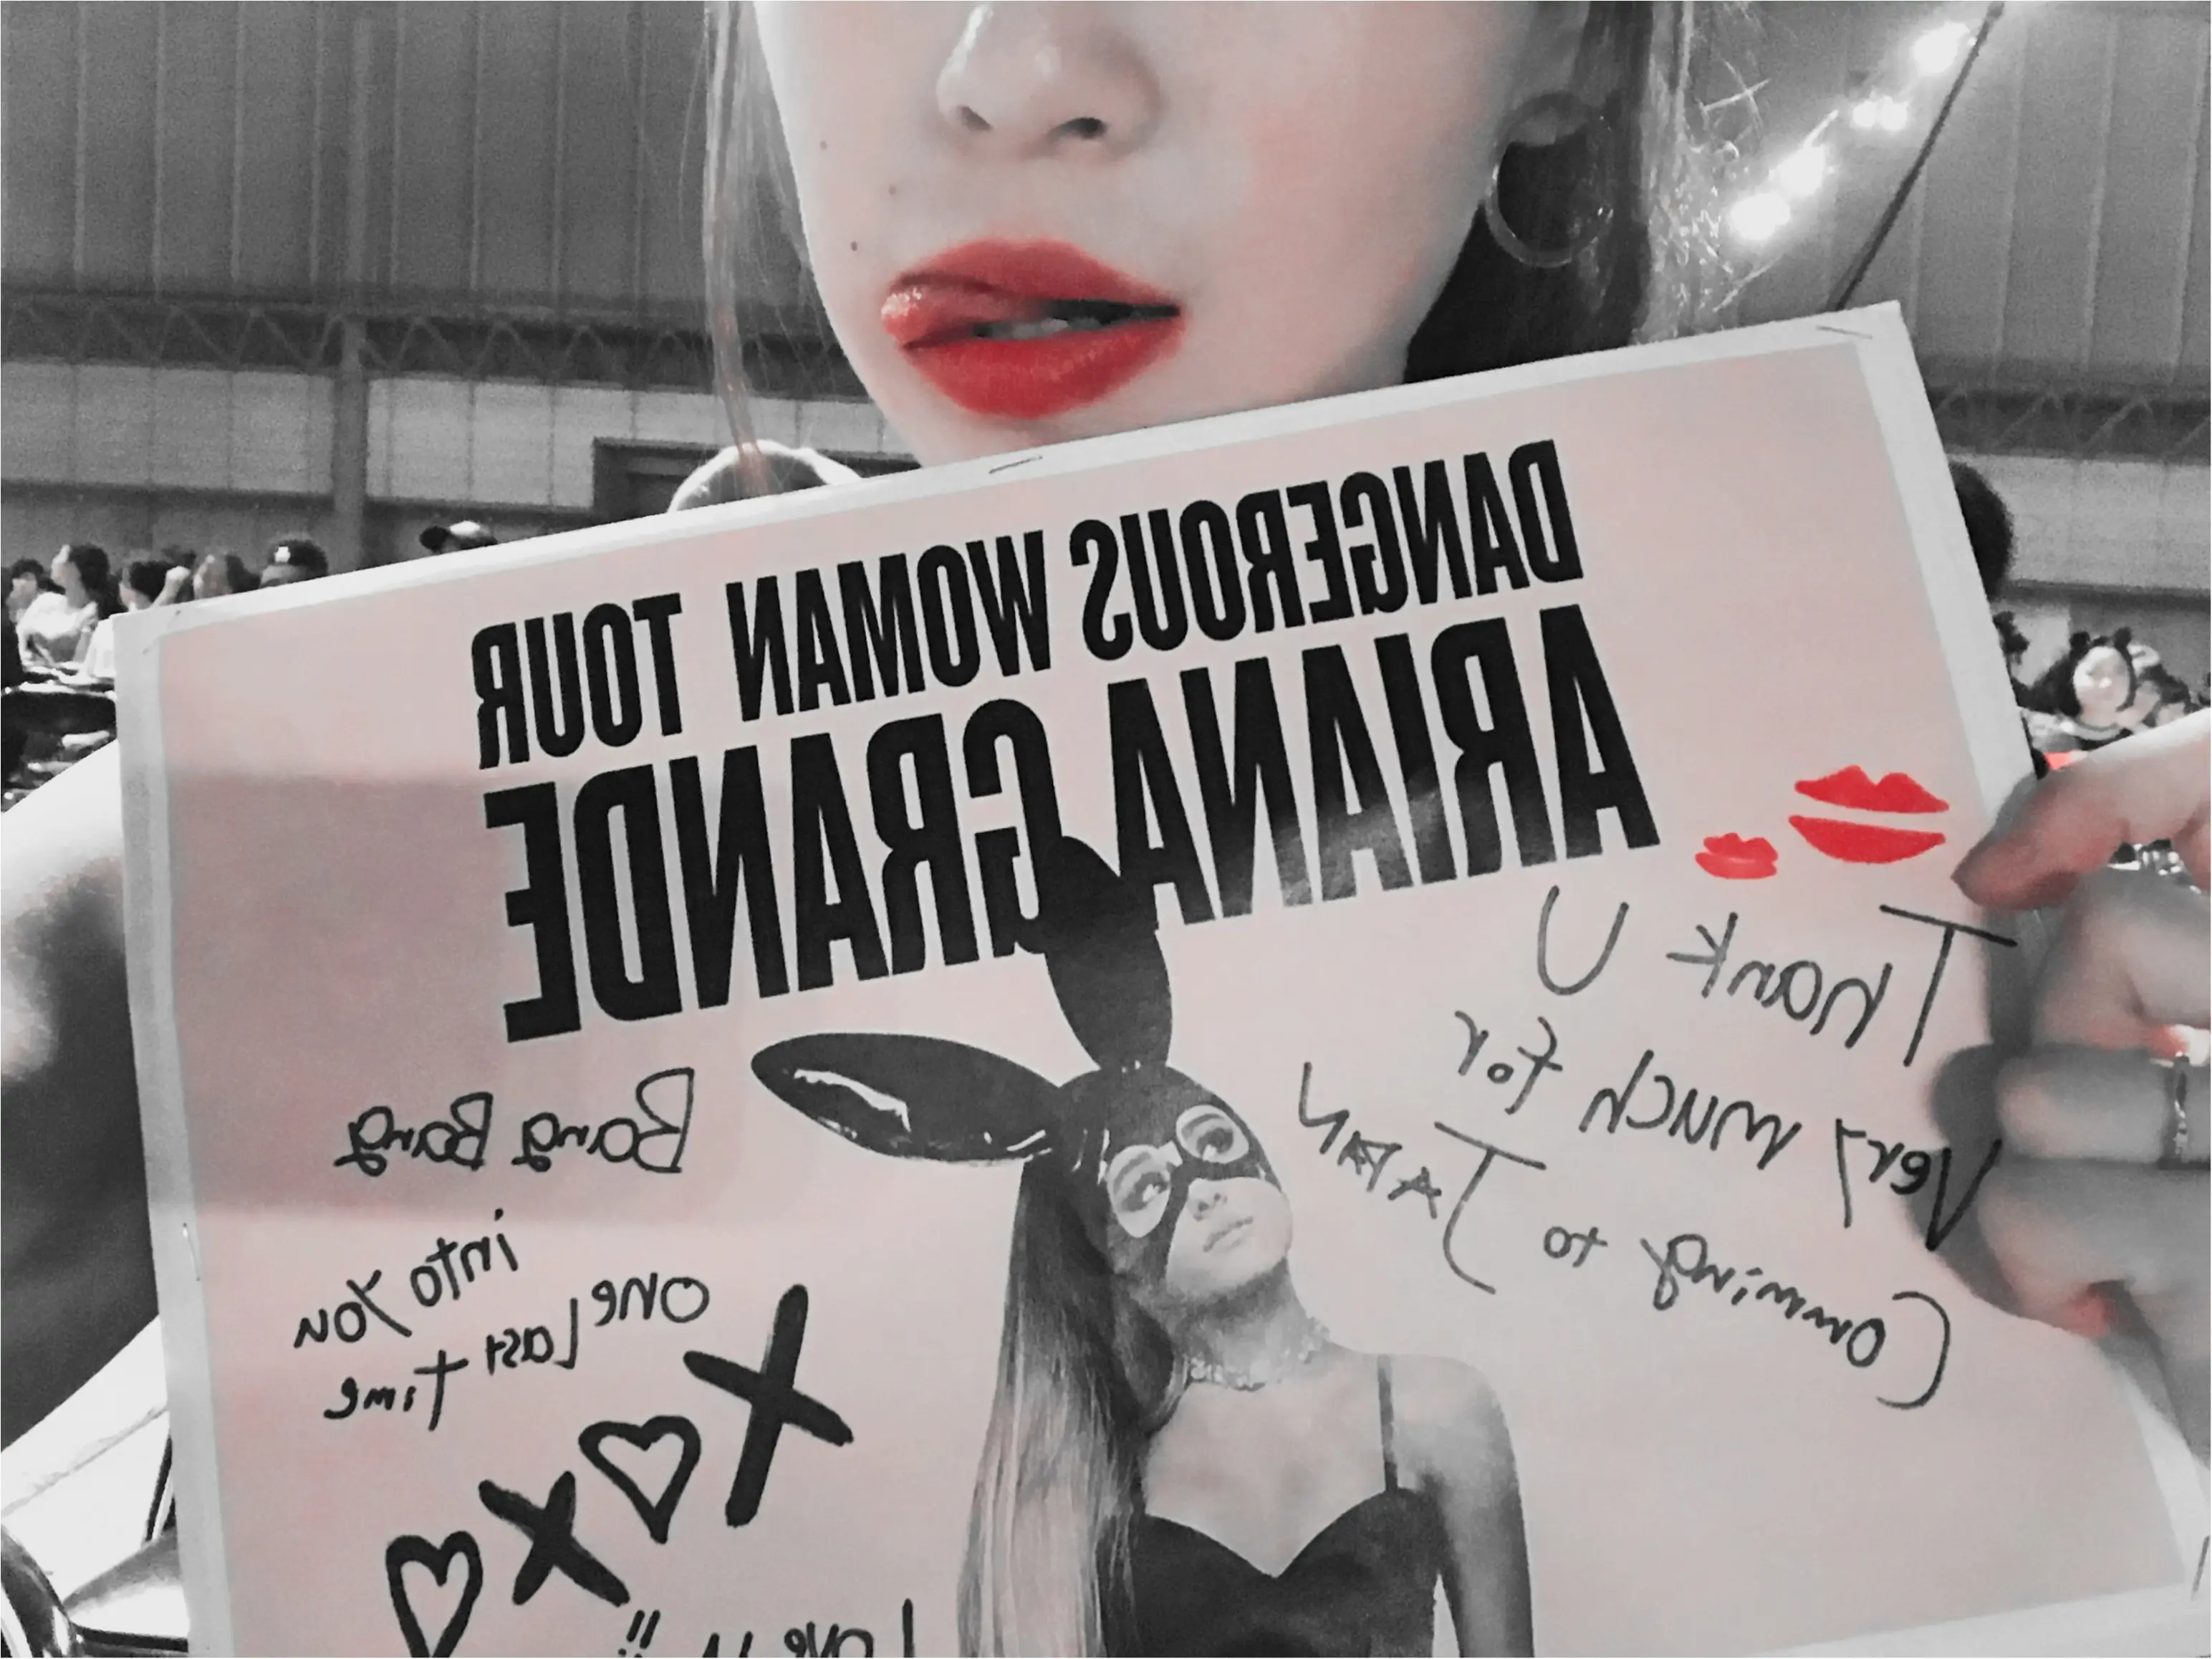 DANGEROUS WOMAN TOUR
ARIANA GRANDE
Thank U
Very much for
Comming to JAPAN
Bang Bang
into You
one Last Time
X♡X♡
Love U !!